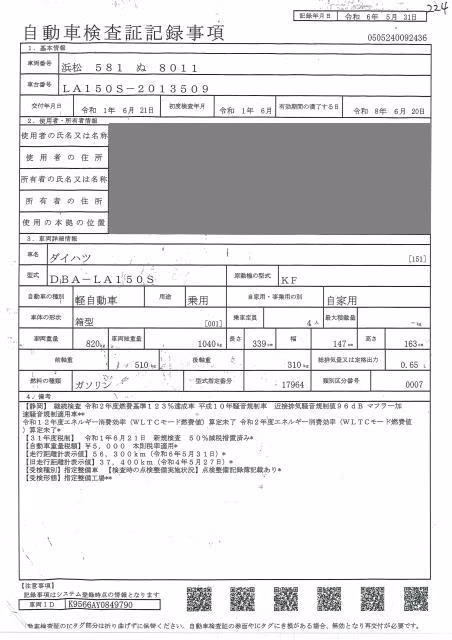 224
記録年月日 令和 6年 5月 31日
自動車検査証記録事項
0505240092436
1.基本情報
車両番号 浜松 581 ぬ 8011
車台番号 LA150S-2013509
交付年月日 令和 1年 6月 21日 初度検査年月 令和 1年 6月 有効期間の満了する日 令和 8年 6月 20日
2.使用者・所有者情報
使用者の氏名又は名称
使用者の住所
所有者の氏名又は名称
所有者の住所
使用の本拠の位置
3.車両詳細情報
車名 ダイハツ [151]
型式 DBA-LA150S 原動機の型式 KF
自動車の種別 軽自動車 用途 乗用 自家用・事業用の別 自家用
車体の形状 箱型 [001] 乗車定員 4人 最大積載量 -kg
車両重量 820kg 車両総重量 1040kg 長さ 339cm 幅 147cm 高さ 163cm
前前軸重 510kg 後後軸重 310kg 総排気量又は定格出力 0.65 L
燃料の種類 ガソリン 型式指定番号 17964 類別区分番号 0007
4.備考
【静岡】 継続検査 令和2年度燃費基準123%達成車 平成10年騒音規制車 近接排気騒音規制値96dB マフラー加
速騒音規制適用車**
令和12年度エネルギー消費効率(WLTCモード燃費値)算定未了 令和2年度エネルギー消費効率(WLTCモード燃費値
)算定未了*
【31年度税制】 令和1年6月21日 新規検査 50%減税措置済み*
【自動車重量税額】¥5,000 本則税率適用*
【走行距離計表示値】56,300km(令和6年5月31日)*
【旧走行距離計表示値】37,400km(令和4年5月27日)*
【受検種別】指定整備車 【検査時の点検整備実施状況】点検整備記録簿記載あり*
【受検形態】指定整備工場**
【注意事項】
記録事項はシステム登録時点の情報となります
車両ID K9566AY0849790
動車検査証のICタグ部分は折り曲げずに保管ください。自動車検査証の券面やICタグにき損がある場合、無効となり再交付が必要です。